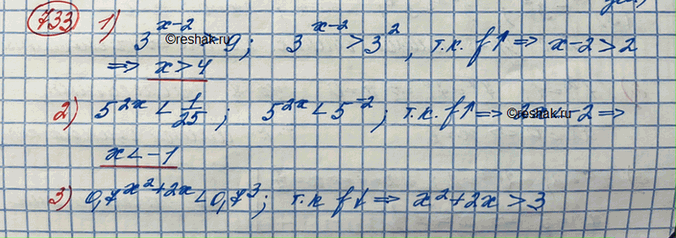 733 1) 3^{x-2} > 9; 3^{x-2} > 3^2, т.к. f↑ ⇒ x-2>2
©reshak.ru
⇒ x>4
2) 5^{2x} < 1/25; 5^{2x} < 5^{-2}; т.к. f↑ ⇒ 2x<-2 ⇒
©reshak.ru
x<-1
3) 0,7^{x^2+2x} < 0,7^3; т.к f↓ ⇒ x^2+2x>3